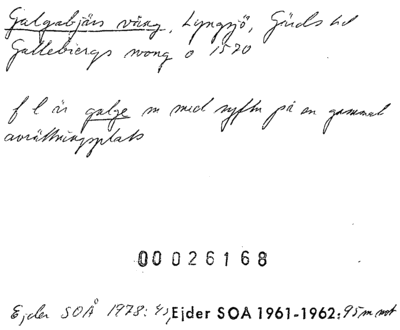 Galgabjärs vång, Lyngsjö, Gärds hd
Gallebiergs wong o 1570
f l är galge m med syftn på en gammal
avrättningsplats
00026168
Ejder SOÅ 1978: 45, Ejder SOA 1961-1962: 95 m not